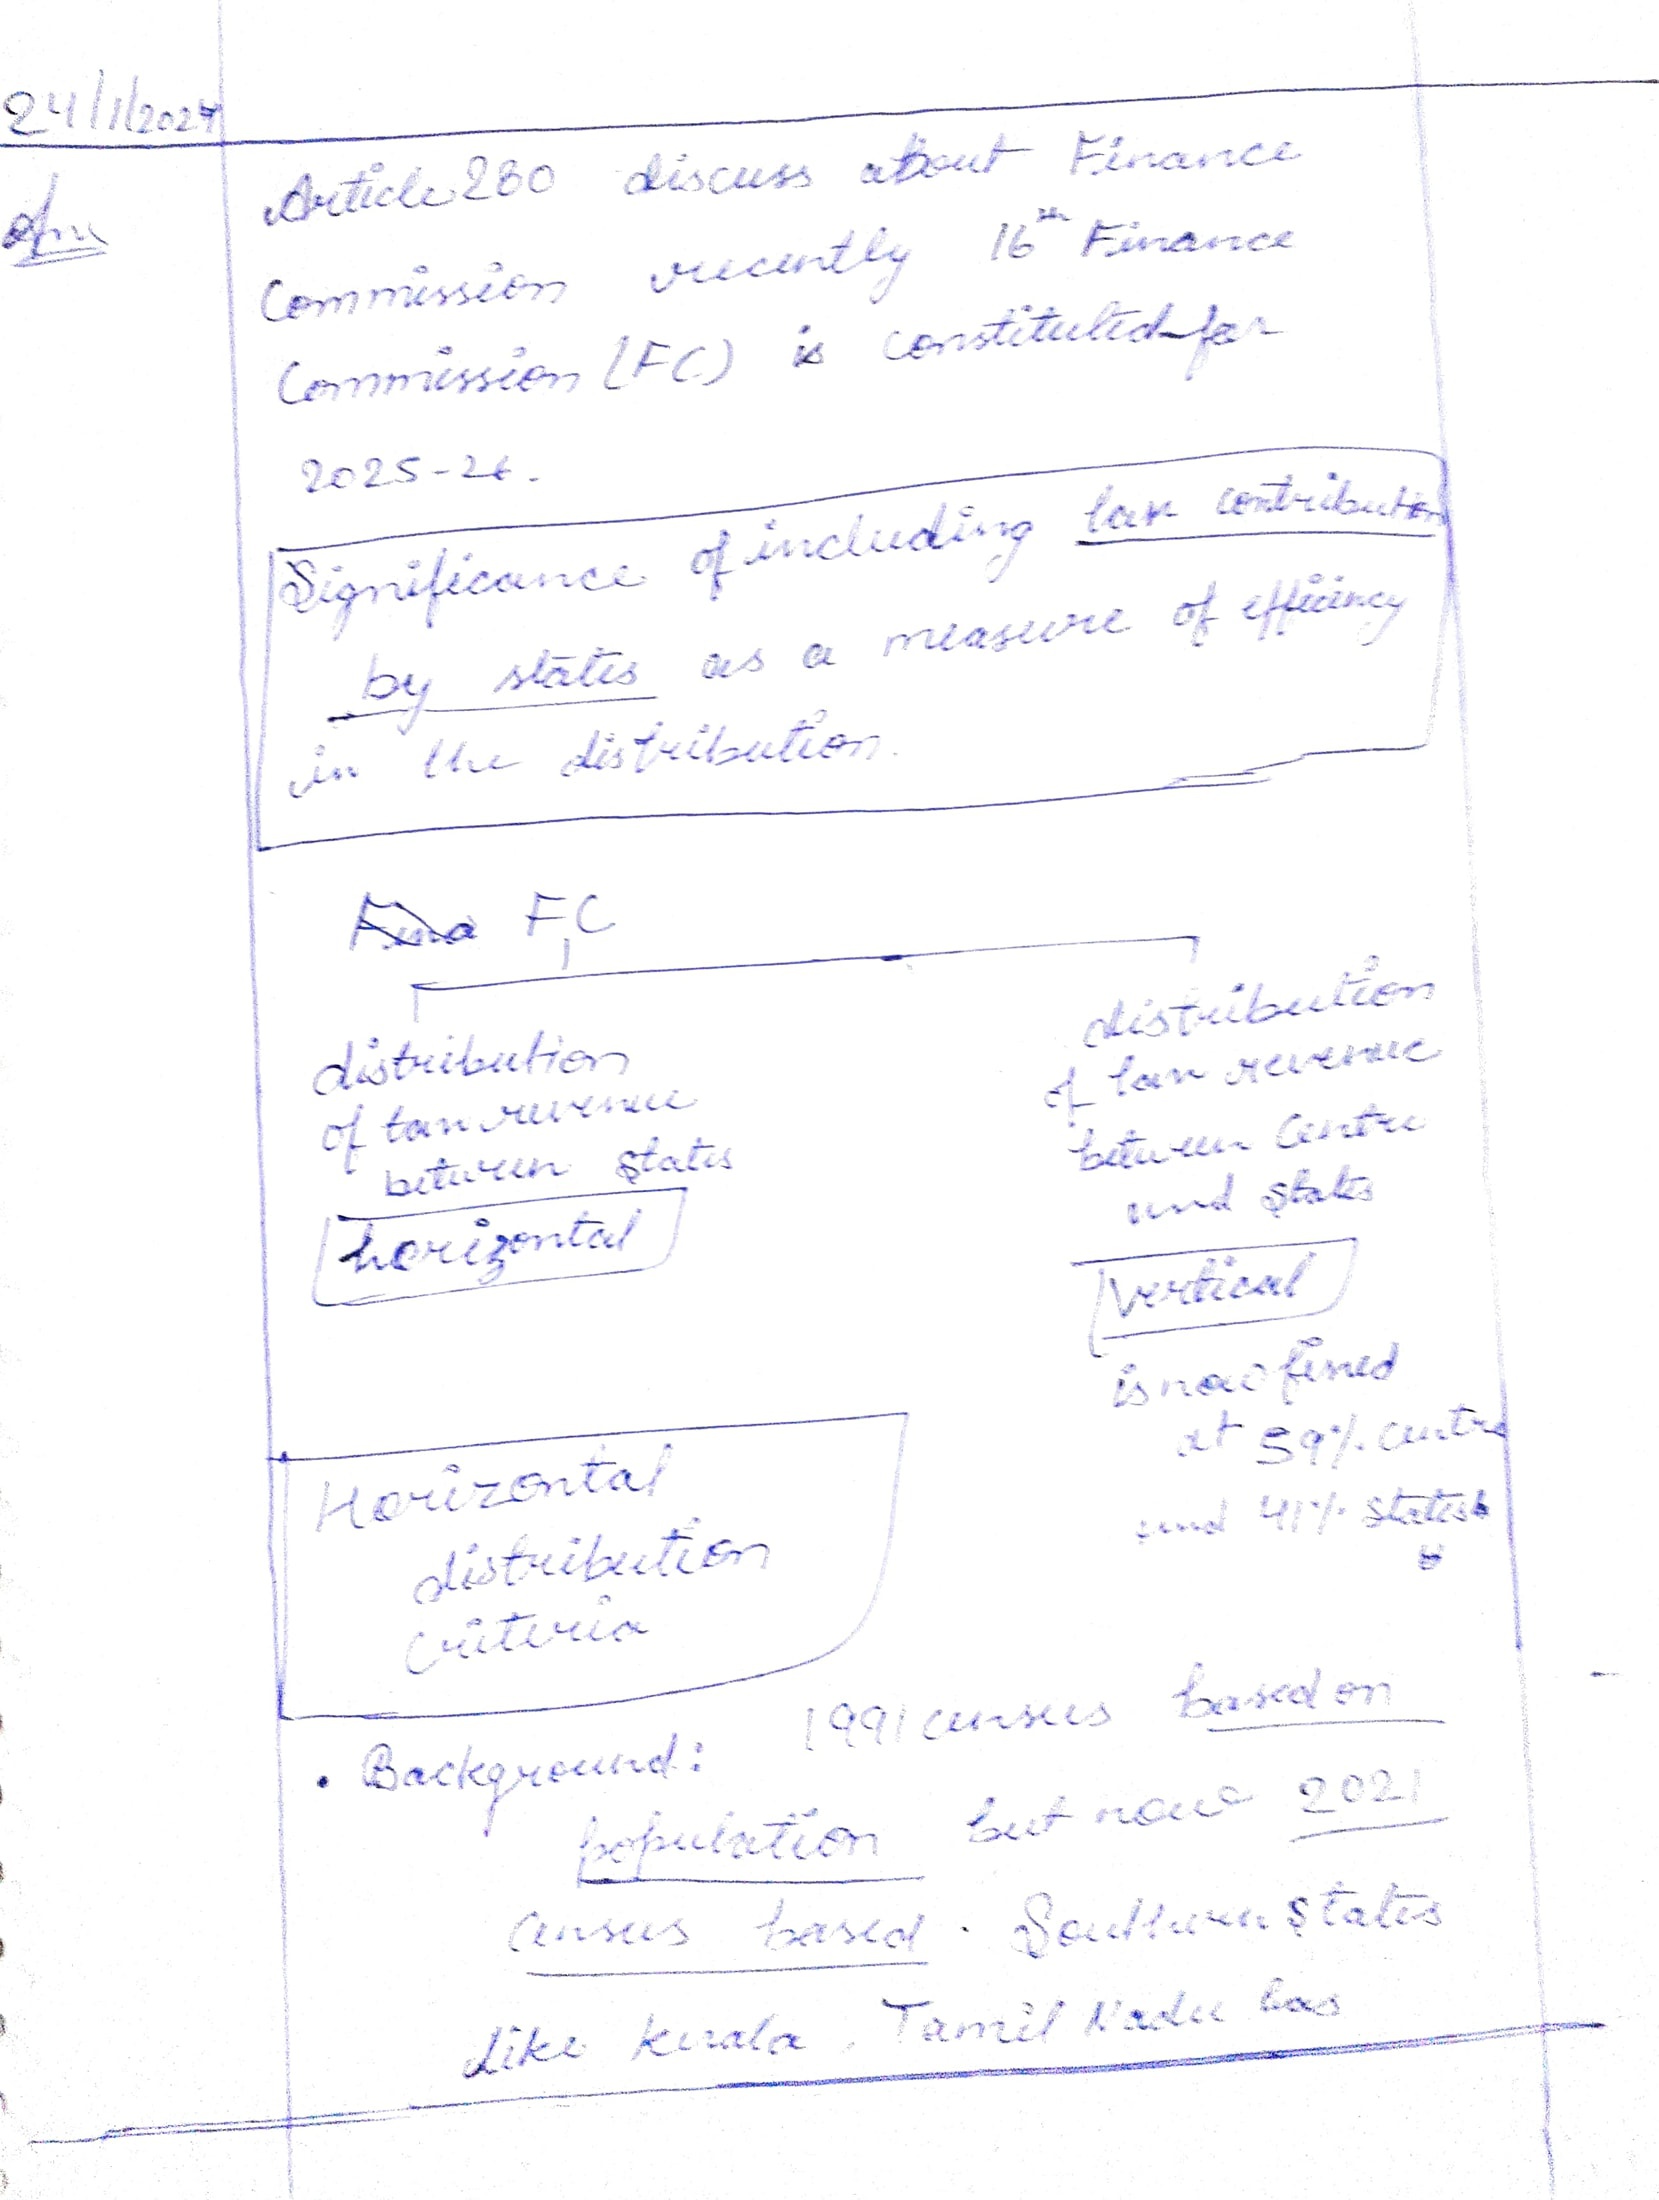 24/1/2024
Ans
Article 280 discuss about Finance
Commission recently 16th Finance
Commission (FC) is constituted for
2025-26.
Significance of including tax contribution
by states as a measure of efficincy
in the distribution.
FC
distribution
of tax revenue
between states
horizontal
distribution
of tax revenue
between Centre
and states
vertical
is now fixed
at 59% centre
and 41% states
Horizontal
distribution
criteria
• Background: 1991 census based on
population but now 2021
census based. Southern states
like Kerala, Tamil Nadu has